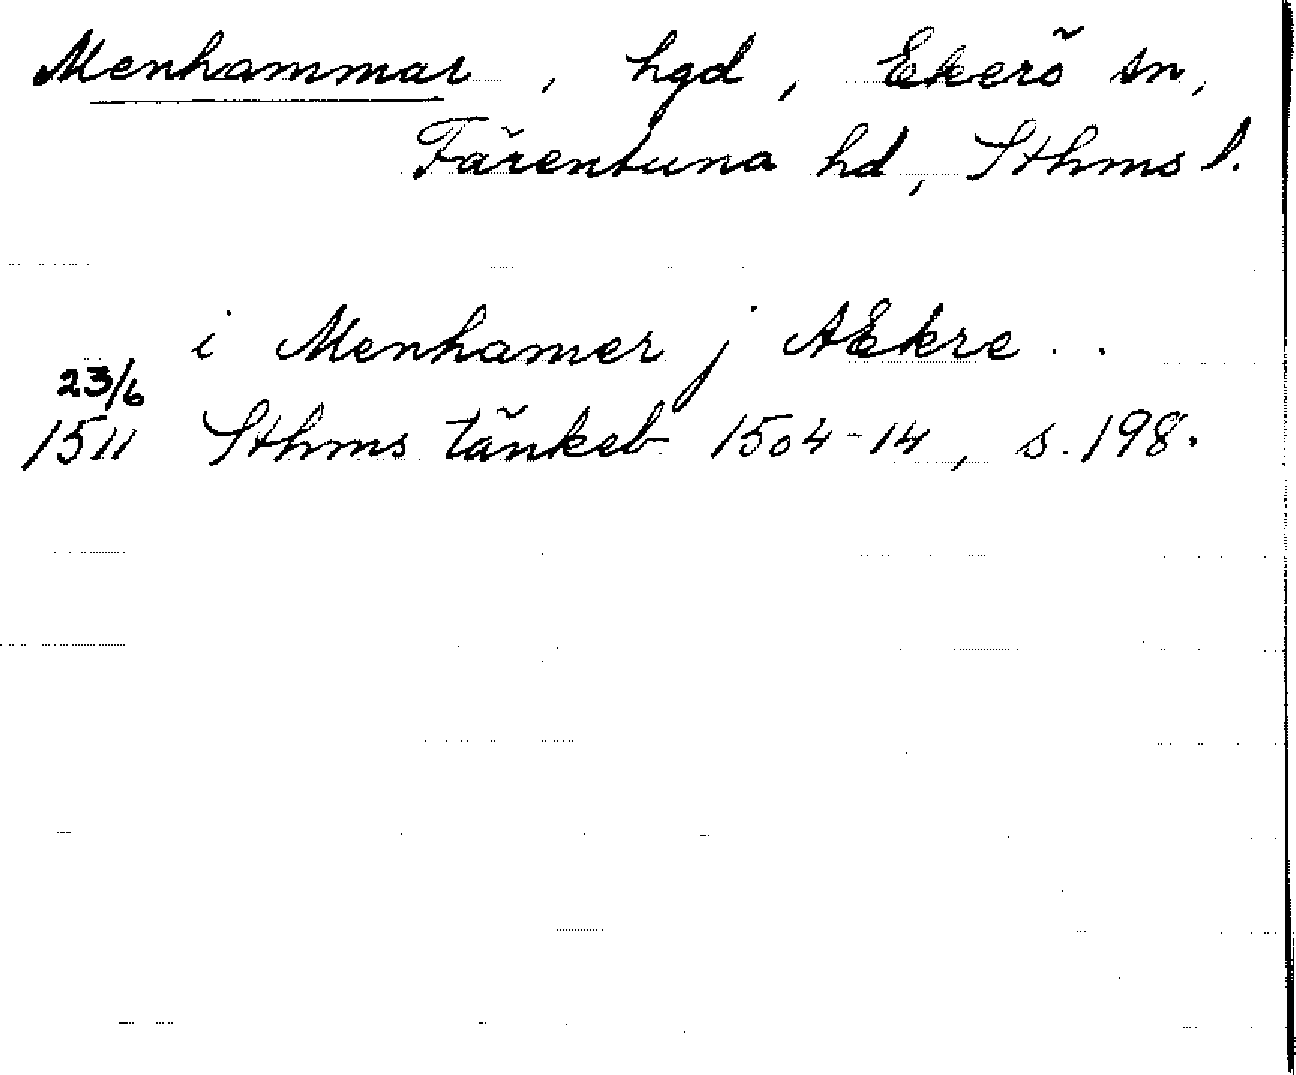 Menhammar, hgd, Ekerö sn,
Färentuna hd, Sthms l.
i Menhamer j AEkre..
23/6
1511 Sthms tänkeb 1504-14, s. 198.